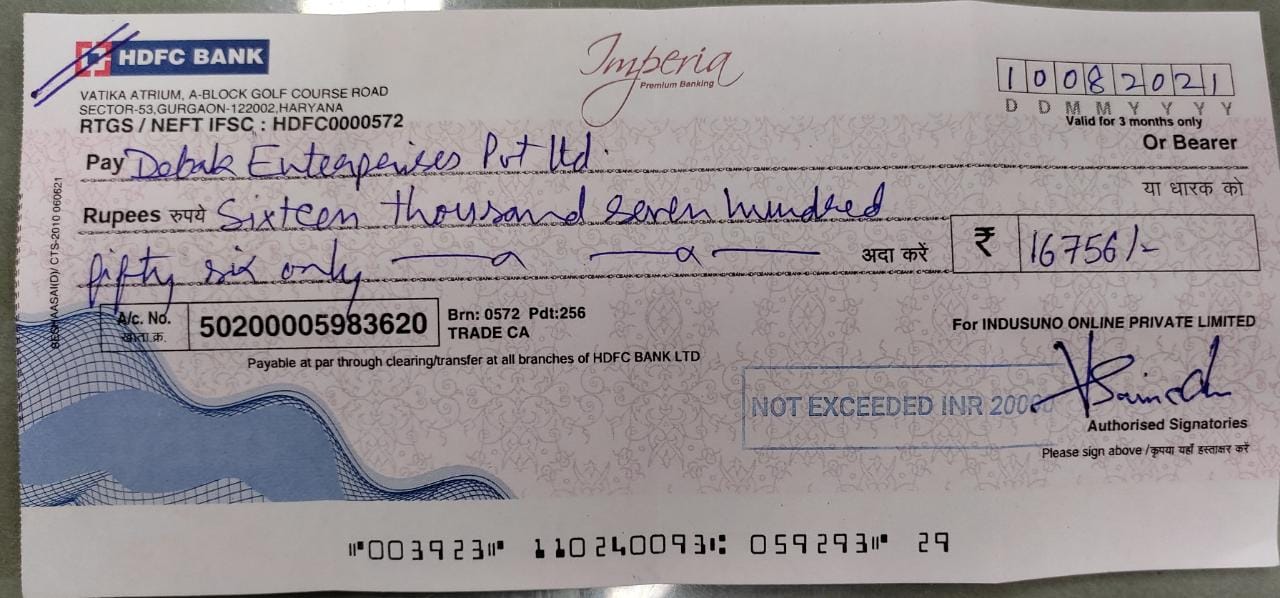 HDFC BANK
Imperia
Premium Banking
VATIKA ATRIUM, A-BLOCK GOLF COURSE ROAD
SECTOR-53,GURGAON-122002,HARYANA
RTGS / NEFT IFSC : HDFC0000572
10082021
D D M M Y Y Y Y
Valid for 3 months only
Pay Debak Enterprises Pvt ltd.
Or Bearer
या धारक को
Rupees रुपये Sixteen thousand seven hundred
fifty six only
अदा करें ₹ 16756/-
A/c. No.
खाता क्र.
50200005983620
Brn: 0572 Pdt:256
TRADE CA
Payable at par through clearing/transfer at all branches of HDFC BANK LTD
For INDUSUNO ONLINE PRIVATE LIMITED
NOT EXCEEDED INR 20000
Authorised Signatories
Please sign above /कृपया यहाँ हस्ताक्षर करें
⑈003923⑈ 110240093⑆ 059293⑈ 29